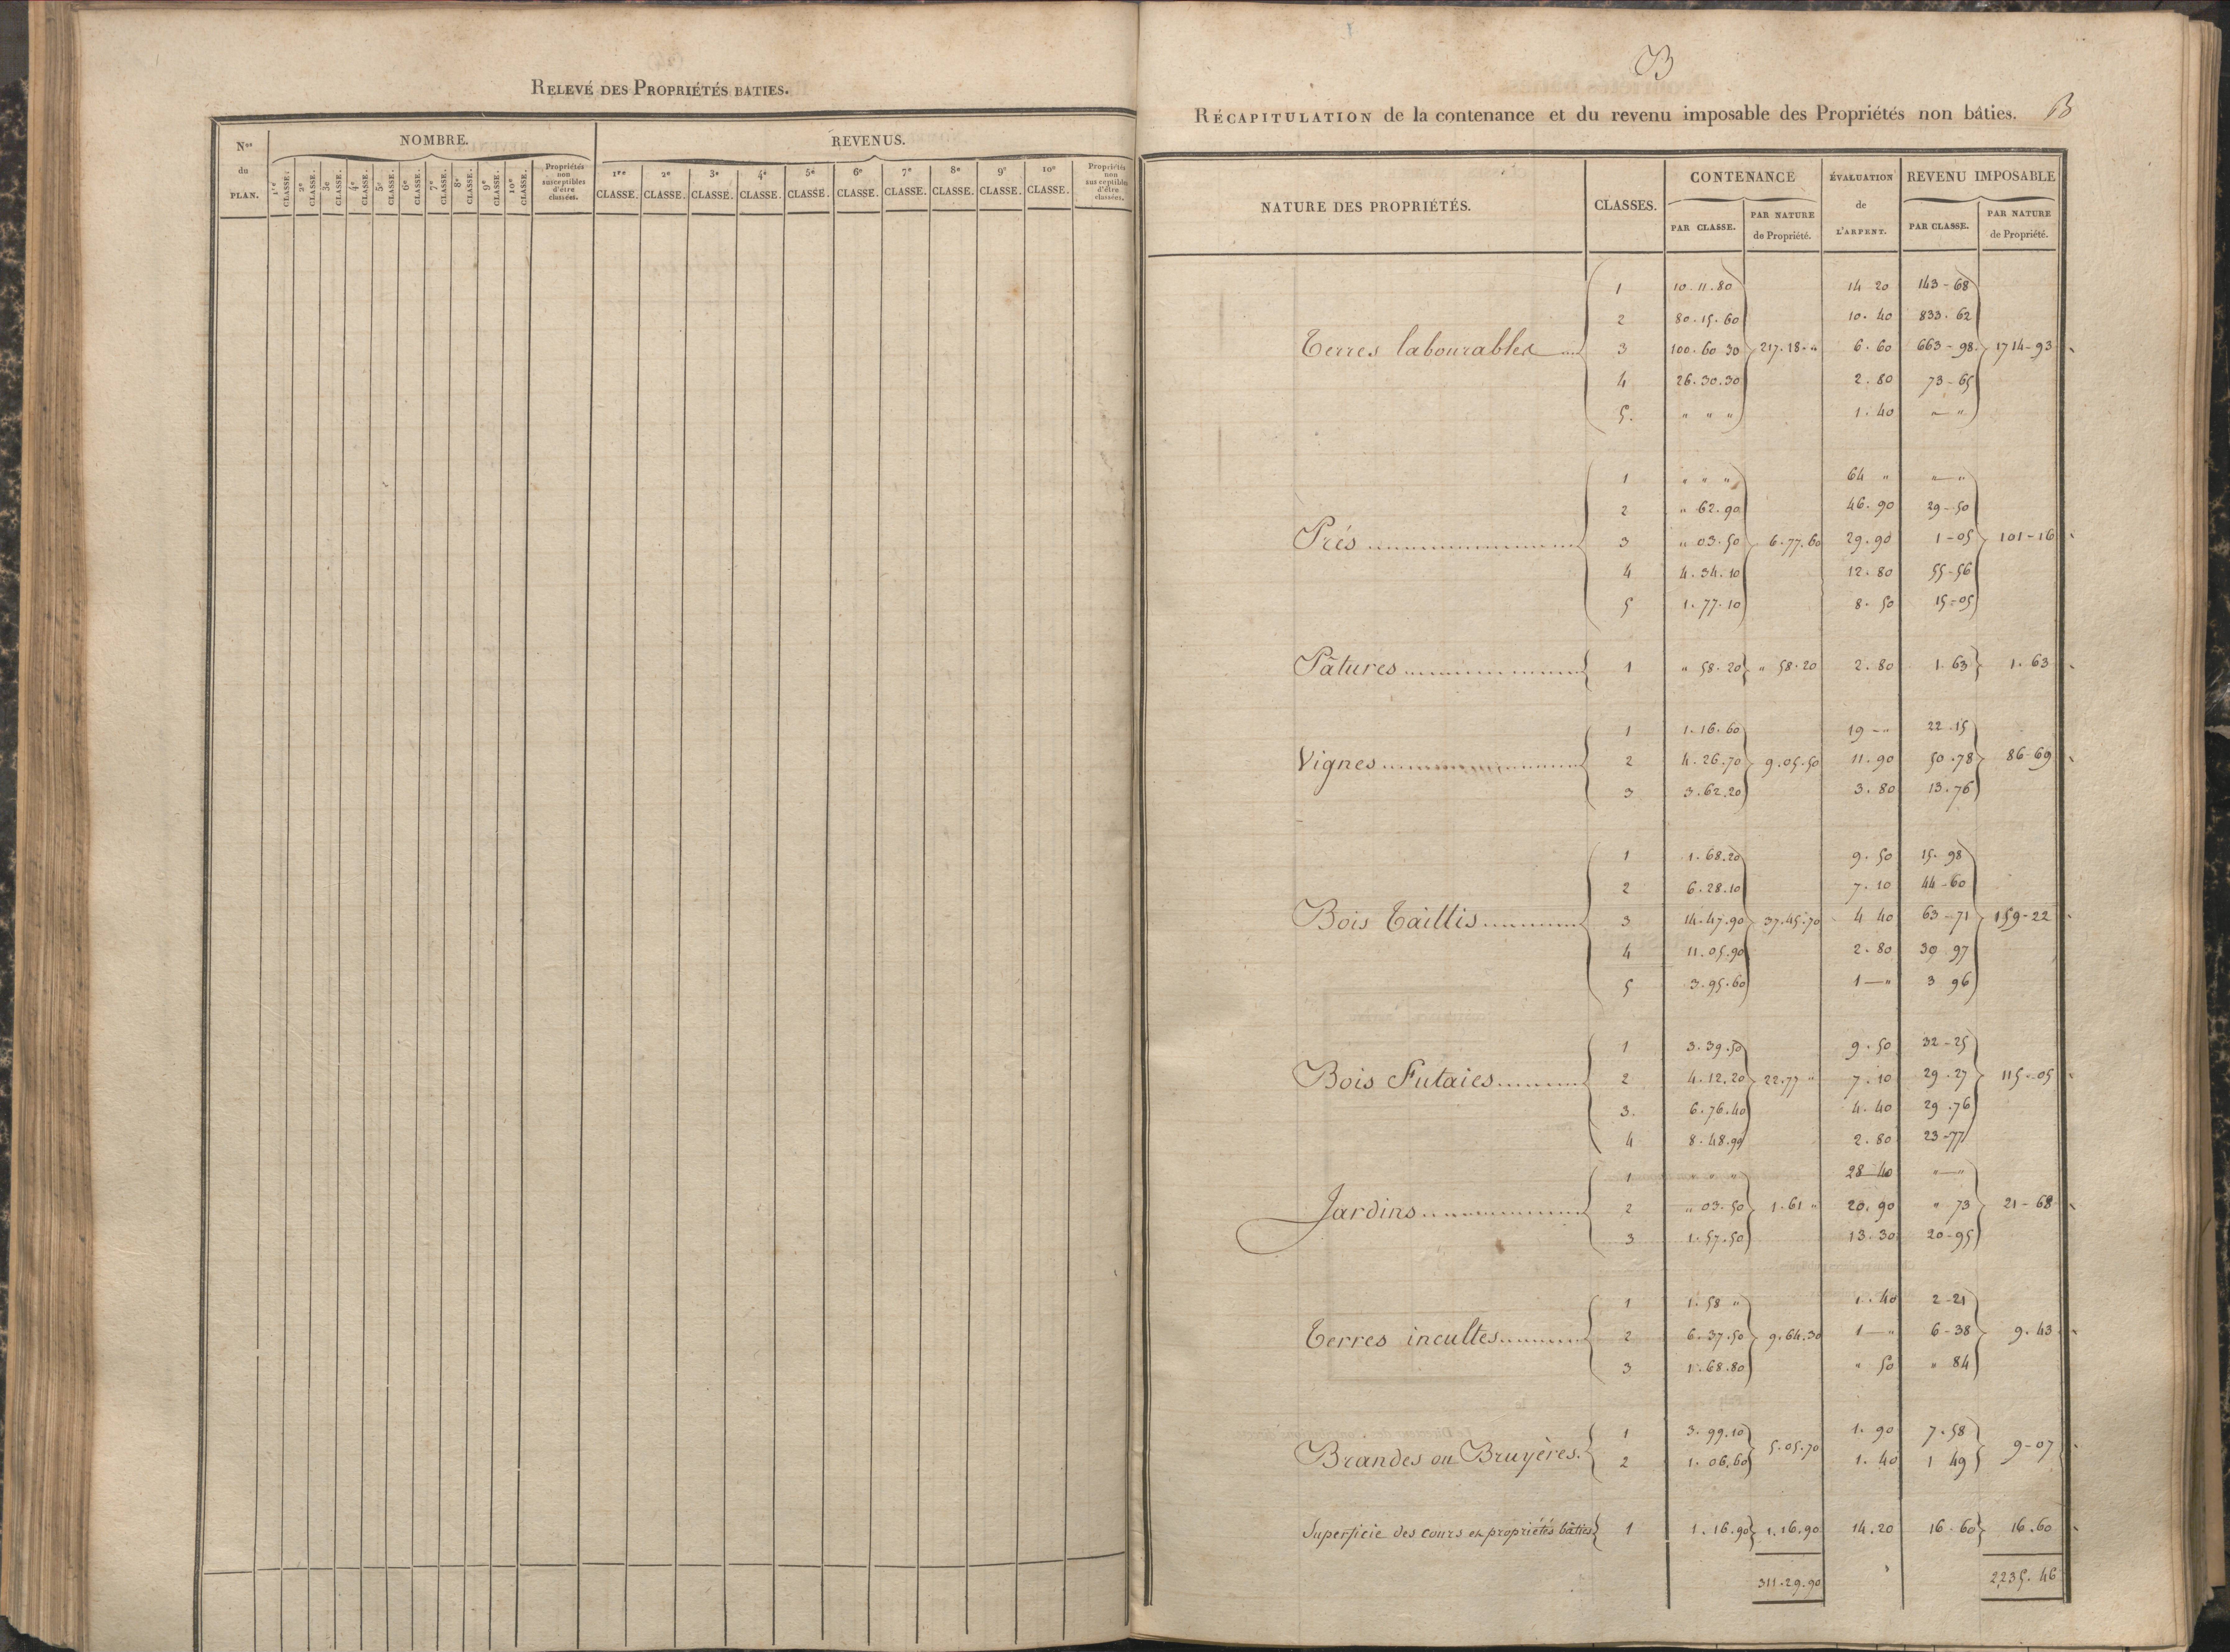 RELEVÉ DES PROPRIÉTÉS BATIES.
Nos du PLAN.
NOMBRE.
1re CLASSE. 2e CLASSE. 3e CLASSE. 4e CLASSE. 5e CLASSE. 6e CLASSE. 7e CLASSE. 8e CLASSE. 9e CLASSE. 10e CLASSE. Propriétés non susceptibles d'être classées.
REVENUS.
1re CLASSE. 2e CLASSE. 3e CLASSE. 4e CLASSE. 5e CLASSE. 6e CLASSE. 7e CLASSE. 8e CLASSE. 9e CLASSE. 10e CLASSE. Propriétés non susceptibles d'être classées.
B
RÉCAPITULATION de la contenance et du revenu imposable des Propriétés non bâties. B
NATURE DES PROPRIÉTÉS. CLASSES. CONTENANCE ÉVALUATION de L'ARPENT. REVENU IMPOSABLE
PAR CLASSE. PAR NATURE de Propriété. PAR CLASSE. PAR NATURE de Propriété.
1 10.11.80 14 20 143-68
2 80.15.60 10.40 833.62
Terres labourables 3 100.60 30 217.18-" 6.60 663-98. 1714-93
4 26.30.30 2.80 73-65
5. " " " 1.40 "-"
1 " " " 64 " "-"
2 " 62.90 46.90 29-50
Prés 3 " 03.50 6.77.60 29.90 1-05 101-16
4 4.34.10 12.80 55-56
5 1.77.10 8.50 15-05
Pâtures 1 " 58.20 " 58.20 2.80 1.63 1.63
1 1.16.60 19-" 22.15
Vignes 2 4.26.70 9.05.50 11.90 50.78 86-69
3 3.62.20 3.80 13.76
1 1.68.20 9.50 15.98
2 6.28.10 7.10 44-60
Bois Taillis 3 14.47.90 37.45.70 4 40 63-71 159-22
4 11.05.90 2.80 30 97
5 3.95.60 1-" 3 96
1 3.39.50 9.50 32-25
Bois Futaies 2 4.12.20 22.77 " 7.10 29.27 115-05
3. 6.76.40 4.40 29.76
4 8.48.90 2.80 23-77
1 " " " 28 40 "-"
Jardins 2 " 03.50 1.61 " 20.90 " 73 21-68
3 1.57.50 13.30 20-95
1 1.58 " 1.40 2-21
Terres incultes 2 6.37.50 9.64.30 1-" 6-38 9.43
3 1.68.80 " 50 " 84
1 3.99.10 1.90 7.58
Brandes ou Bruyères. 5.05.70 9-07
2 1.06.60 1.40 1 49
Superficie des cours et propriétés bâties 1 1.16.90 1.16.90 14.20 16.60 16.60
311.29.90 2235.46